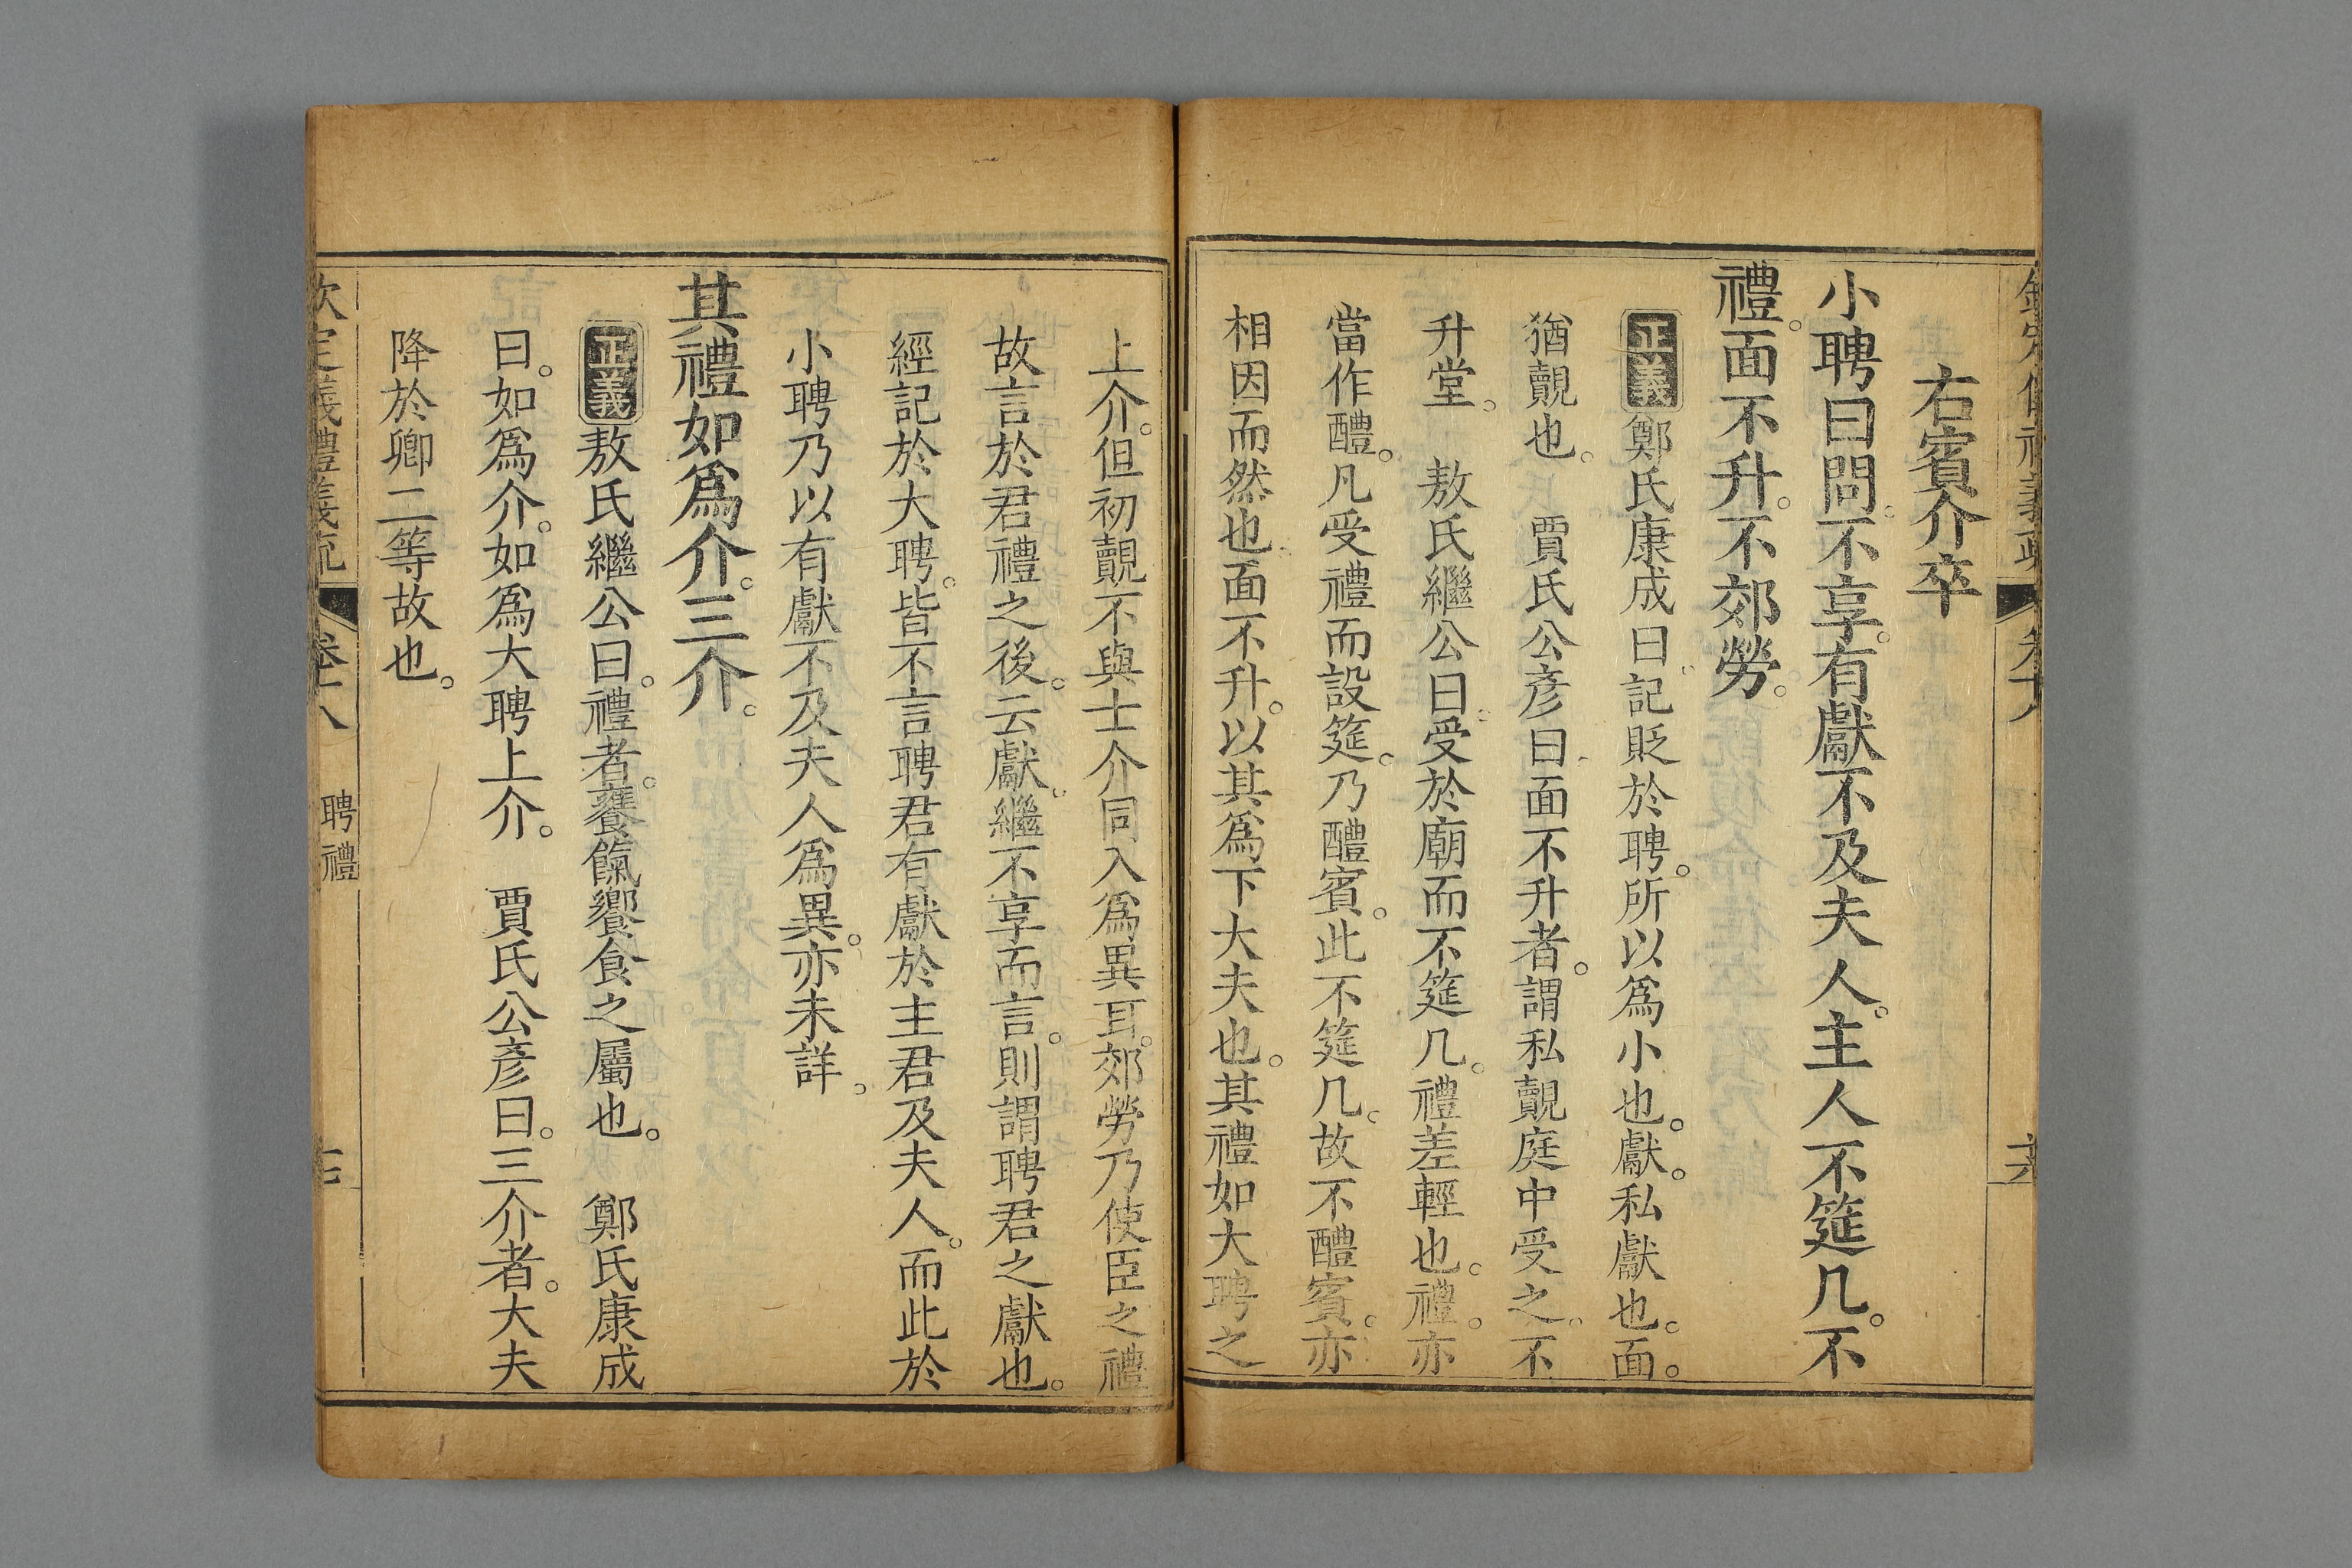 右賓介卒
小聘曰問。不享。有獻不及夫人。主人不筵几。不
禮。面不升。不郊勞。
正義鄭氏康成曰。記貶於聘。所以爲小也。獻。私獻也。面。
猶覿也。　賈氏公彥曰。面不升者。謂私覿庭中受之。不
升堂。　敖氏繼公曰。受於廟而不筵几。禮差輕也。禮。亦
當作醴。凡受禮而設筵。乃醴賓。此不筵几。故不醴賓。亦
相因而然也。面不升。以其爲下大夫也。其禮如大聘之
上介。但初覿不與士介同入爲異耳。郊勞乃使臣之禮
故言於君禮之後。云獻。繼不享而言。則謂聘君之獻也。
經記於大聘。皆不言聘君有獻於主君及夫人。而此於
小聘乃以有獻不及夫人爲異。亦未詳。
其禮如爲介。三介。
正義敖氏繼公曰。禮者。饔餼饗食之屬也。　鄭氏康成
曰。如爲介。如爲大聘上介。　賈氏公彥曰。三介者。大夫
降於卿二等故也。
欽定儀禮義疏　卷十八　聘禮　十七